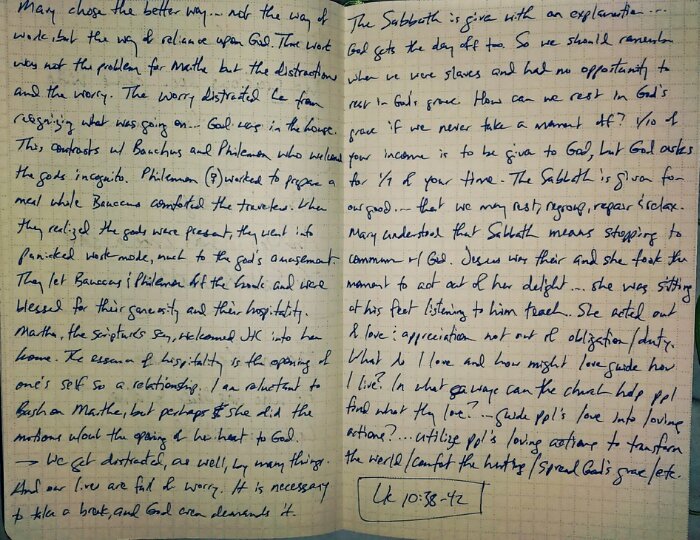 Mary chose the better way... not the way of
work, but the way of reliance upon God. The work
was not the problem for Martha but the distractions
and the worry. The worry distracted her from
recognizing what was going on... God was in the house.
This contrasts w/ Bauchus and Philemon who welcomed
the gods incognito. Philemon (?) worked to prepare a
meal while Bauccus comforted the travelers. When
they realized the gods were present, they went into
panicked work-mode, much to the god's amusement.
They let Bauccus & Philemon off the hook and were
blessed for their generosity and their hospitality.
Martha, the scriptures say, welcomed JHC into her
home. The essence of hospitality is the opening of
one's self to a relationship. I am reluctant to
Bash on Martha, but perhaps she did the
motions w/out the opening of her heart to God.
→ We get distracted, as well, by many things.
And our lives are full of worry. It is necessary
to take a break, and God even demands it.
The Sabbath is give with an explanation...
God gets the day off too. So we should remember
when we were slaves and had no opportunity to
rest in God's grace. How can we rest in God's
grace if we never take a moment off? 1/10 of
your income is to be give to God, but God asks
for 1/7 of your time. The Sabbath is given for
our good... that we may rest, regroup, repair & relax.
Mary understood that Sabbath means stopping to
commune w/ God. Jesus was their and she took the
moment to act out of her delight... she was sitting
at his feet listening to him teach. She acted out
of love & appreciation not out of obligation/duty.
What do I love and how might love guide how
I live? In what ways can the church help ppl
find what they love?... guide ppl's love into loving
actions?... utilize ppl's loving actions to transform
the world/comfort the hurting/spread God's grace/etc.
Lk 10:38-42